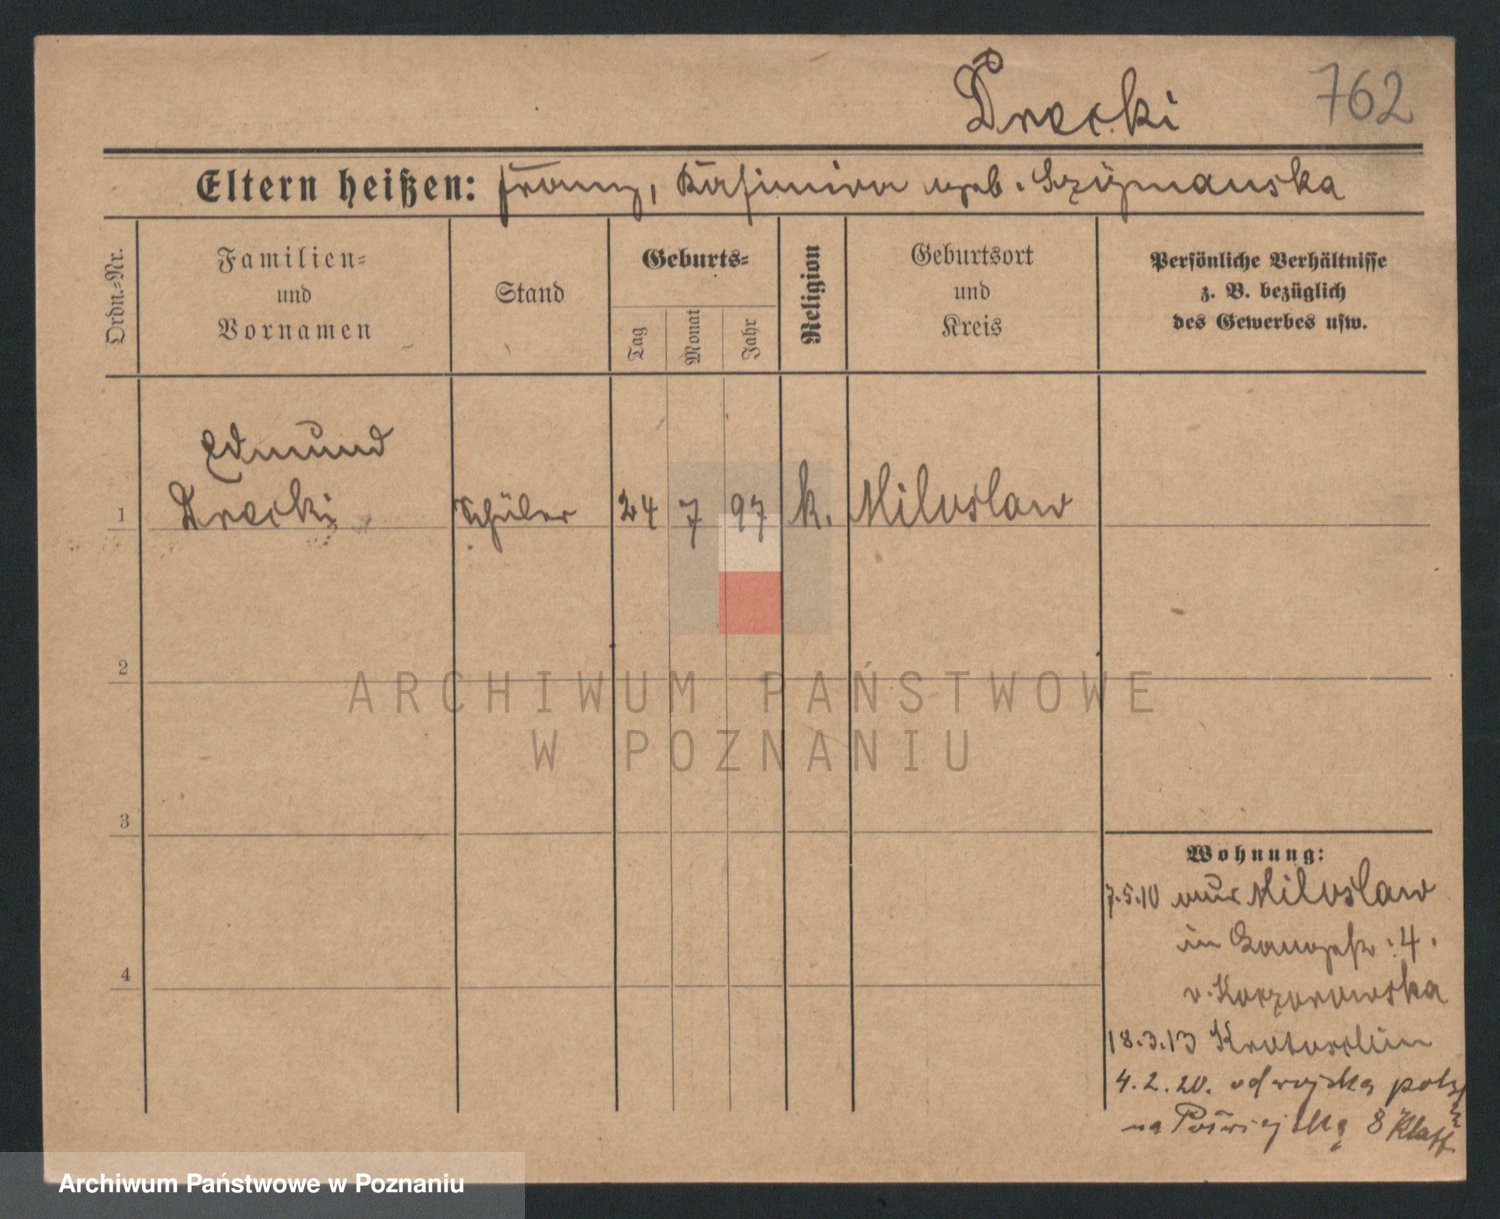 Drecki
762
Eltern heißen: Franz, Kasimira geb. Szymanska
Ordn.-Nr.
Familien-
und
Vornamen
Stand
Geburts-
Tag
Monat
Jahr
Religion
Geburtsort
und
Kreis
Persönliche Verhältnisse
z. B. bezüglich
des Gewerbes usw.
Edmund
1 Drecki Schüler 24 7 97 k. Miloslaw
2
ARCHIWUM PAŃSTWOWE
W POZNANIU
3
Wohnung:
7.5.10 aus Miloslaw
in 4.
v.
4
18.3.13 Krotoschin
4.2.20. od wojska
na 8 Klasse
Archiwum Państwowe w Poznaniu